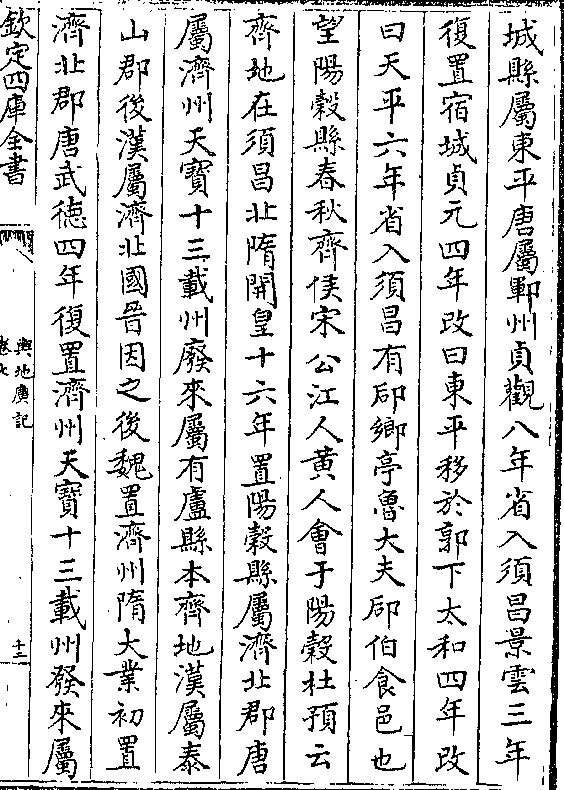 城縣屬東平唐屬鄆州貞觀八年省入須昌景雲三年
復置宿城貞元四年改曰東平移於郭下太和四年改
曰天平六年省入須昌有郈鄉亭魯大夫郈伯食邑也
望陽穀縣春秋齊侯宋公江人黃人會于陽穀杜預云
齊地在須昌北隋開皇十六年置陽穀縣屬濟北郡唐
屬濟州天寶十三載州廢來屬有盧縣本齊地漢屬泰
山郡後漢屬濟北國晉因之後魏置濟州隋大業初置
濟北郡唐武德四年復置濟州天寶十三載州發來屬
欽定四庫全書
輿地廣記
卷七
十三